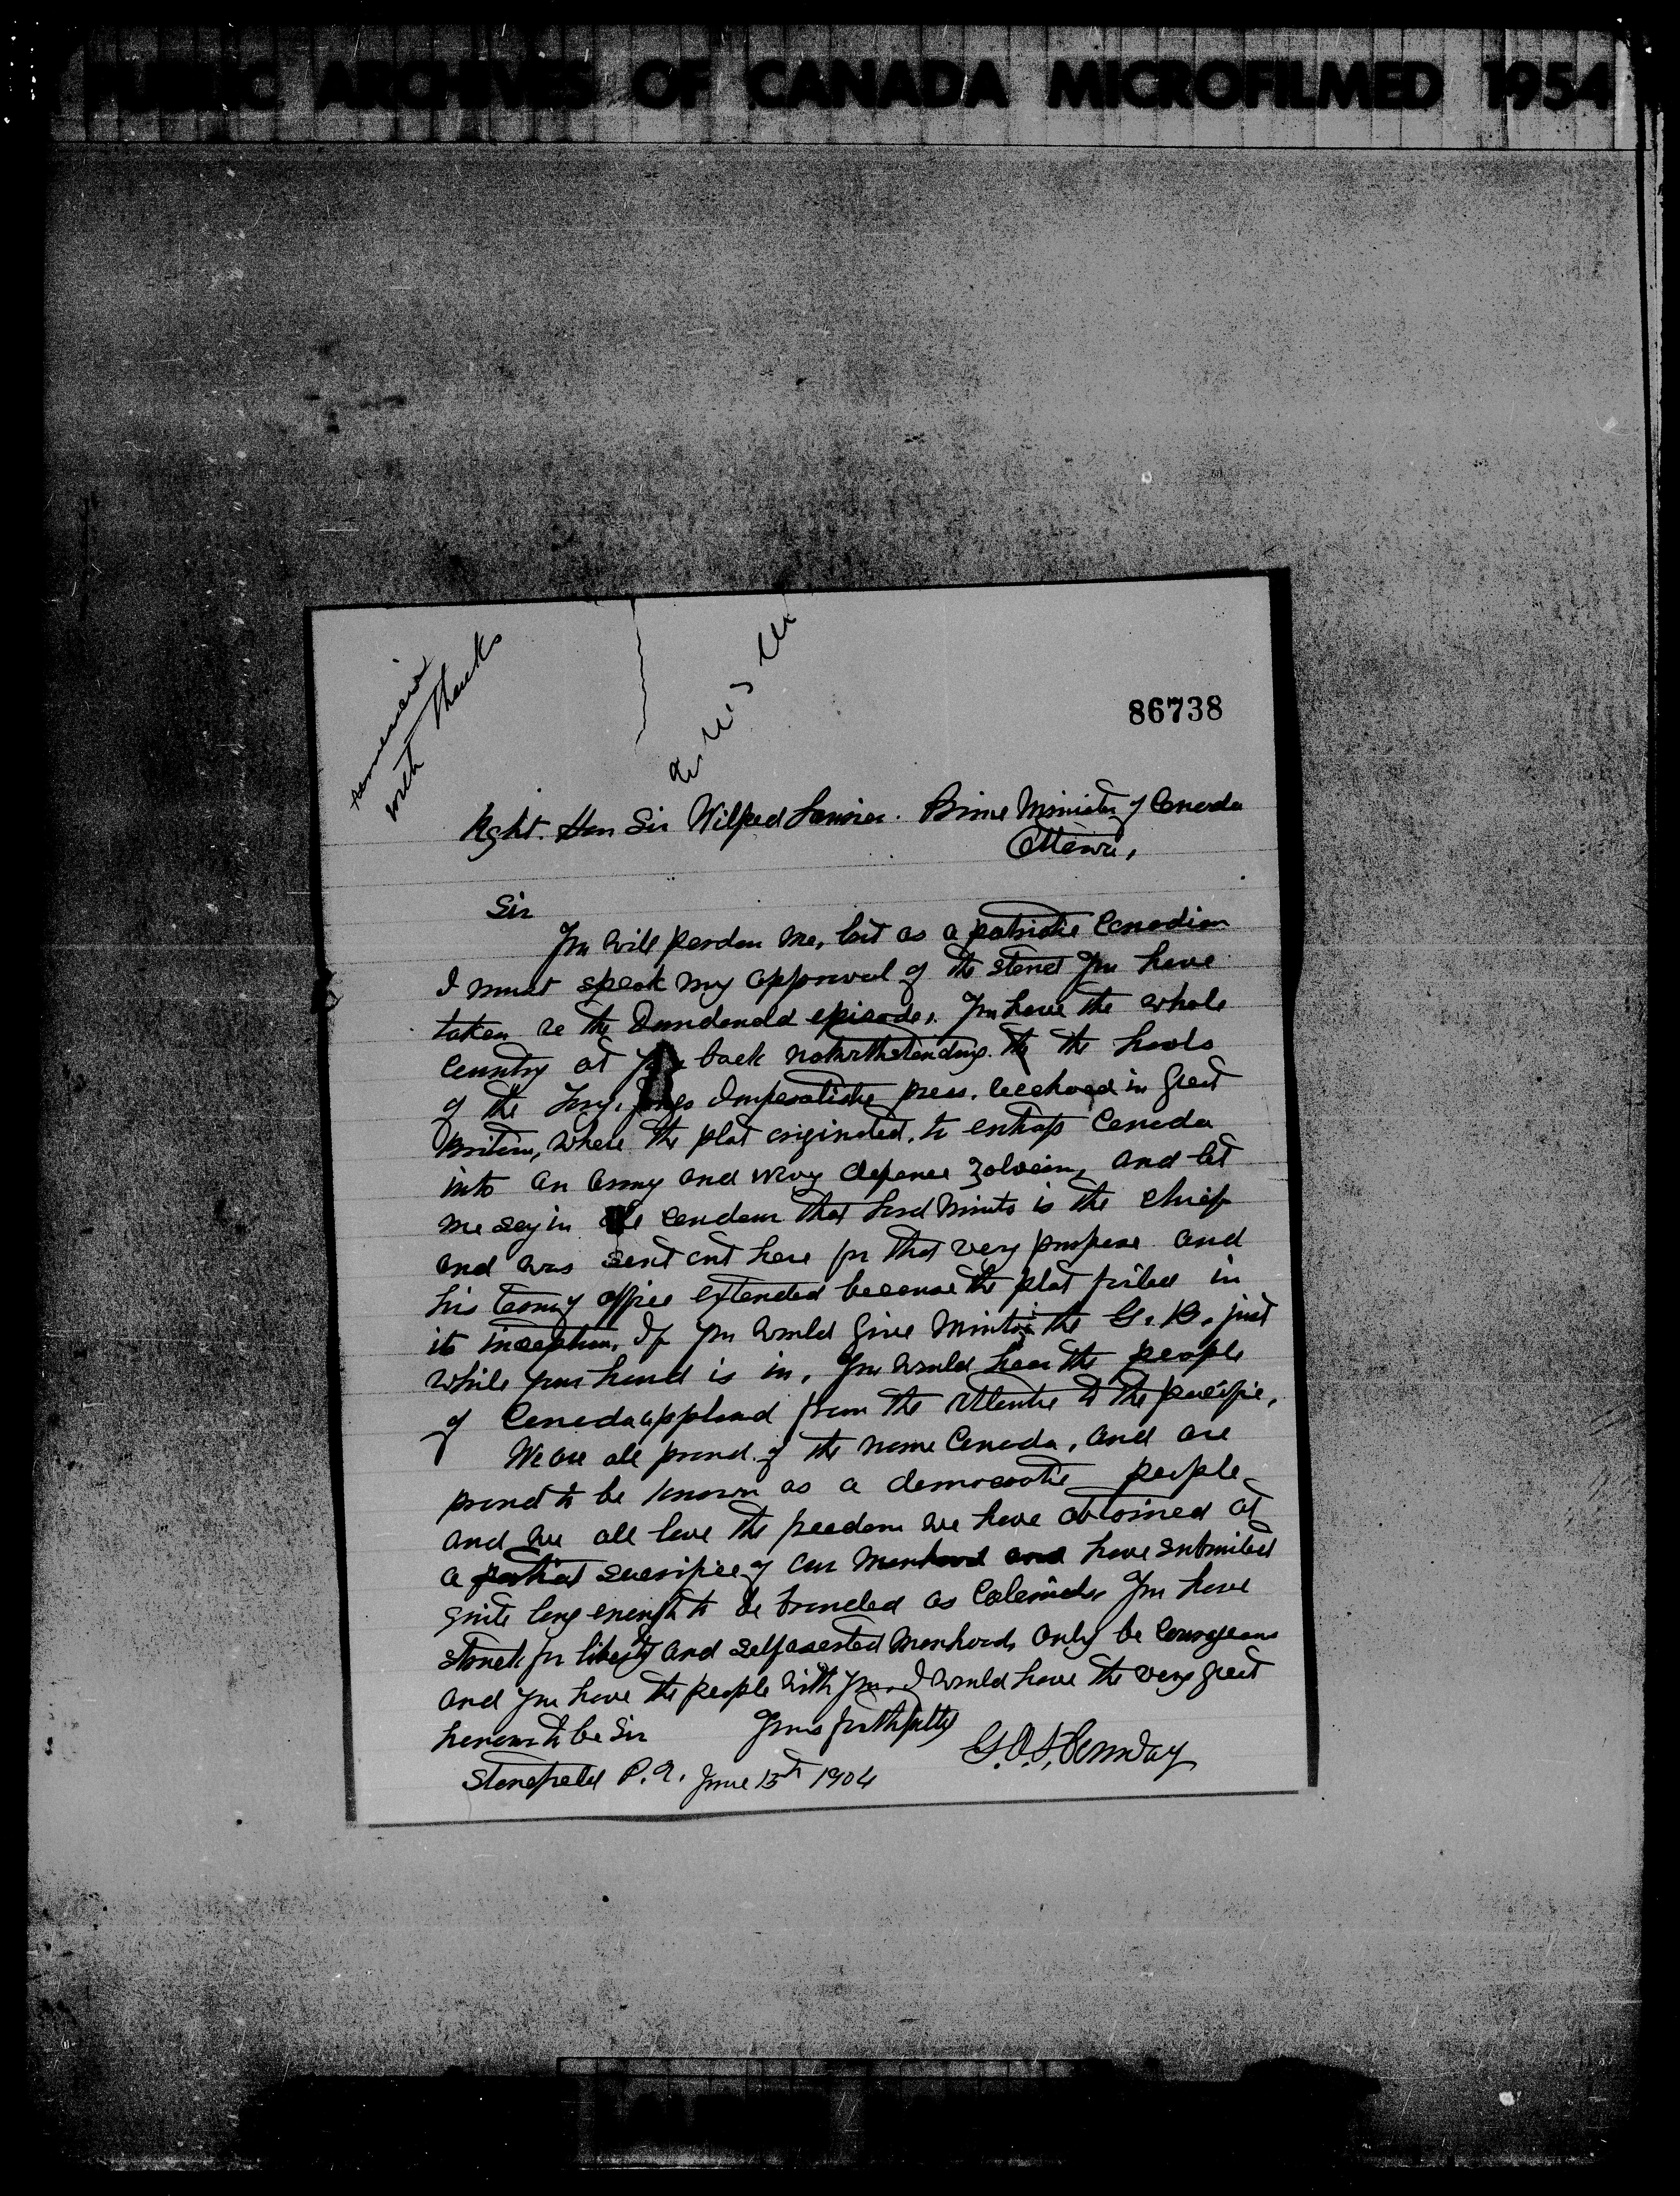 PUBLIC ARCHIVES OF CANADA MICROFILMED 1954
with thanks
86738
Rght. Hon Sir Wilfred Laurier. Prime Minister of Canada
Ottawa,
Sir
You will pardon me, but as a patriotic Canadian
I must speak my approval of the stand you have
taken re the Dundonald episode. You have the whole
Country at your back notwithstanding the the howls
of the Tory, Jingo Imperialistic press. reechoed in Great
Britain, where the plot originated, to entrap Canada
into an Army and Navy defence and let
me say in candour that Lord Minto is the chief
and was sent out here for that very purpose and
his term of office extended because the plot failed in
its inception. If you would give Minto the G. B. just
while your hand is in, you would hear the people
of Canada applaud from the Atlantic to the pacific,
We are all proud of the name Canada, and are
proud to be known as a democratic people
and we all love the freedom we have obtained at
a sacrifice of our and have submitted
quite long enough to be branded as Colonials. You have
struck for liberty and self asserted manhood, only be courageous
and you have the people with you. I would have the very great
honour to be Sir Yours faithfully
Stanstead P.Q. June 15th 1904